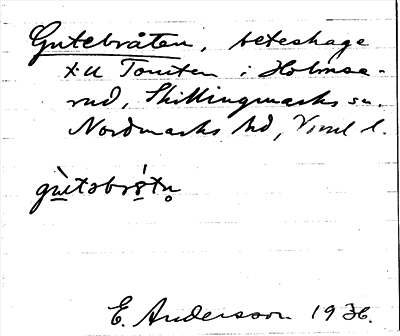 Gutebråten, beteshage
t. u Tomten i Holmse-
rud, Skillingmarks sn.
Nordmarks hd, Vrml l.
E. Andersson 1936.